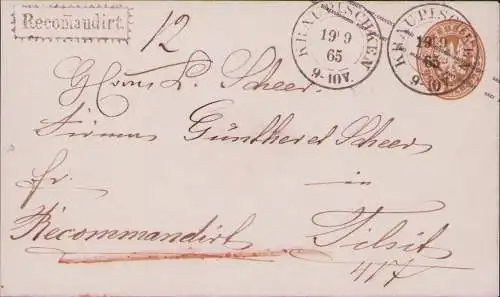 Recomandirt.
12
KRAUPISCHKEN
19 9
65
9-10V.
KRAUPISCHKEN
19 9
65
9-10V.
L. Scheer.
Firma Günther & Scheer
fr.
in
Recommandirt Tilsit
417